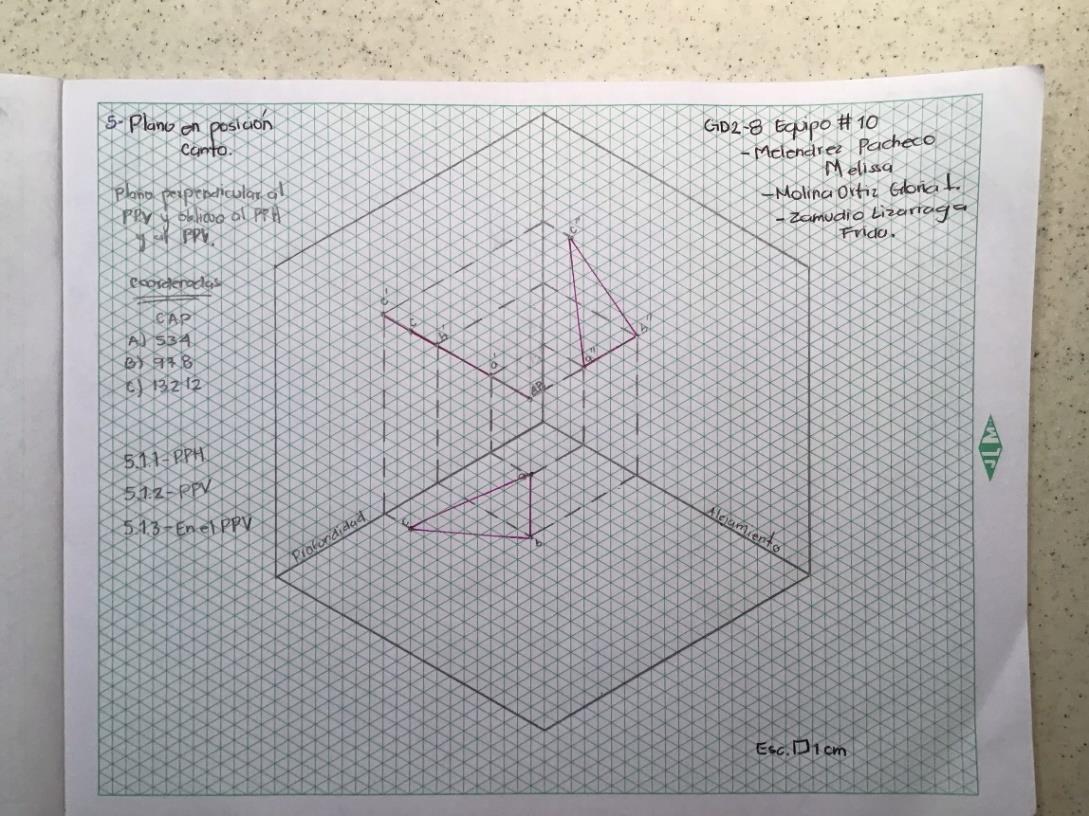 5- Plano en posición
Canto.
Plano perpendicular al
PPV y oblicuo al PPH
y al PPV.
Coordenadas
CAP
A) 534
B) 978
C) 13212
5.1.1- PPH
5.1.2- PPV
5.1.3- En el PPV
GD2-8 Equipo #10
- Melendrez Pacheco
Melissa
- Molina Ortiz Gloria L.
- Zamudio Lizarraga
Frida.
c'
c
b'
a'
c''
b''
a''
a
c
b
Profundidad
Alejamiento
Esc. □ 1 cm